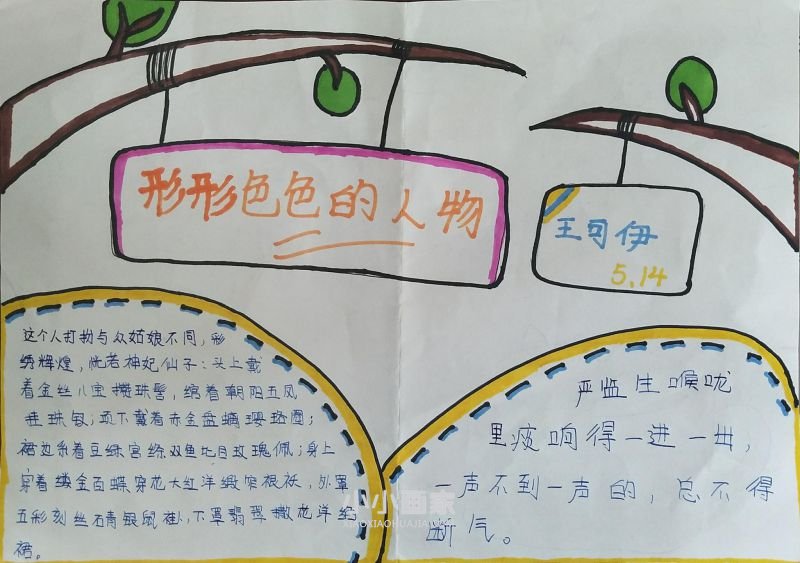 形形色色的人物
王可伊
5.14
这个人打扮与众姑娘不同，彩
绣辉煌，恍若神妃仙子：头上戴
着金丝八宝攒珠髻，绾着朝阳五凤
挂珠钗；项下戴着赤金盘螭璎珞圈；
裙边系着豆绿宫绦双鱼比目玫瑰佩；身上
穿着缕金百蝶穿花大红洋缎窄裉袄，外罩
五彩刻丝石青银鼠褂，下罩翡翠撒花洋绉
裙。
严监生喉咙
里痰响得一进一出，
一声不到一声的，总不得
断气。
小小画家